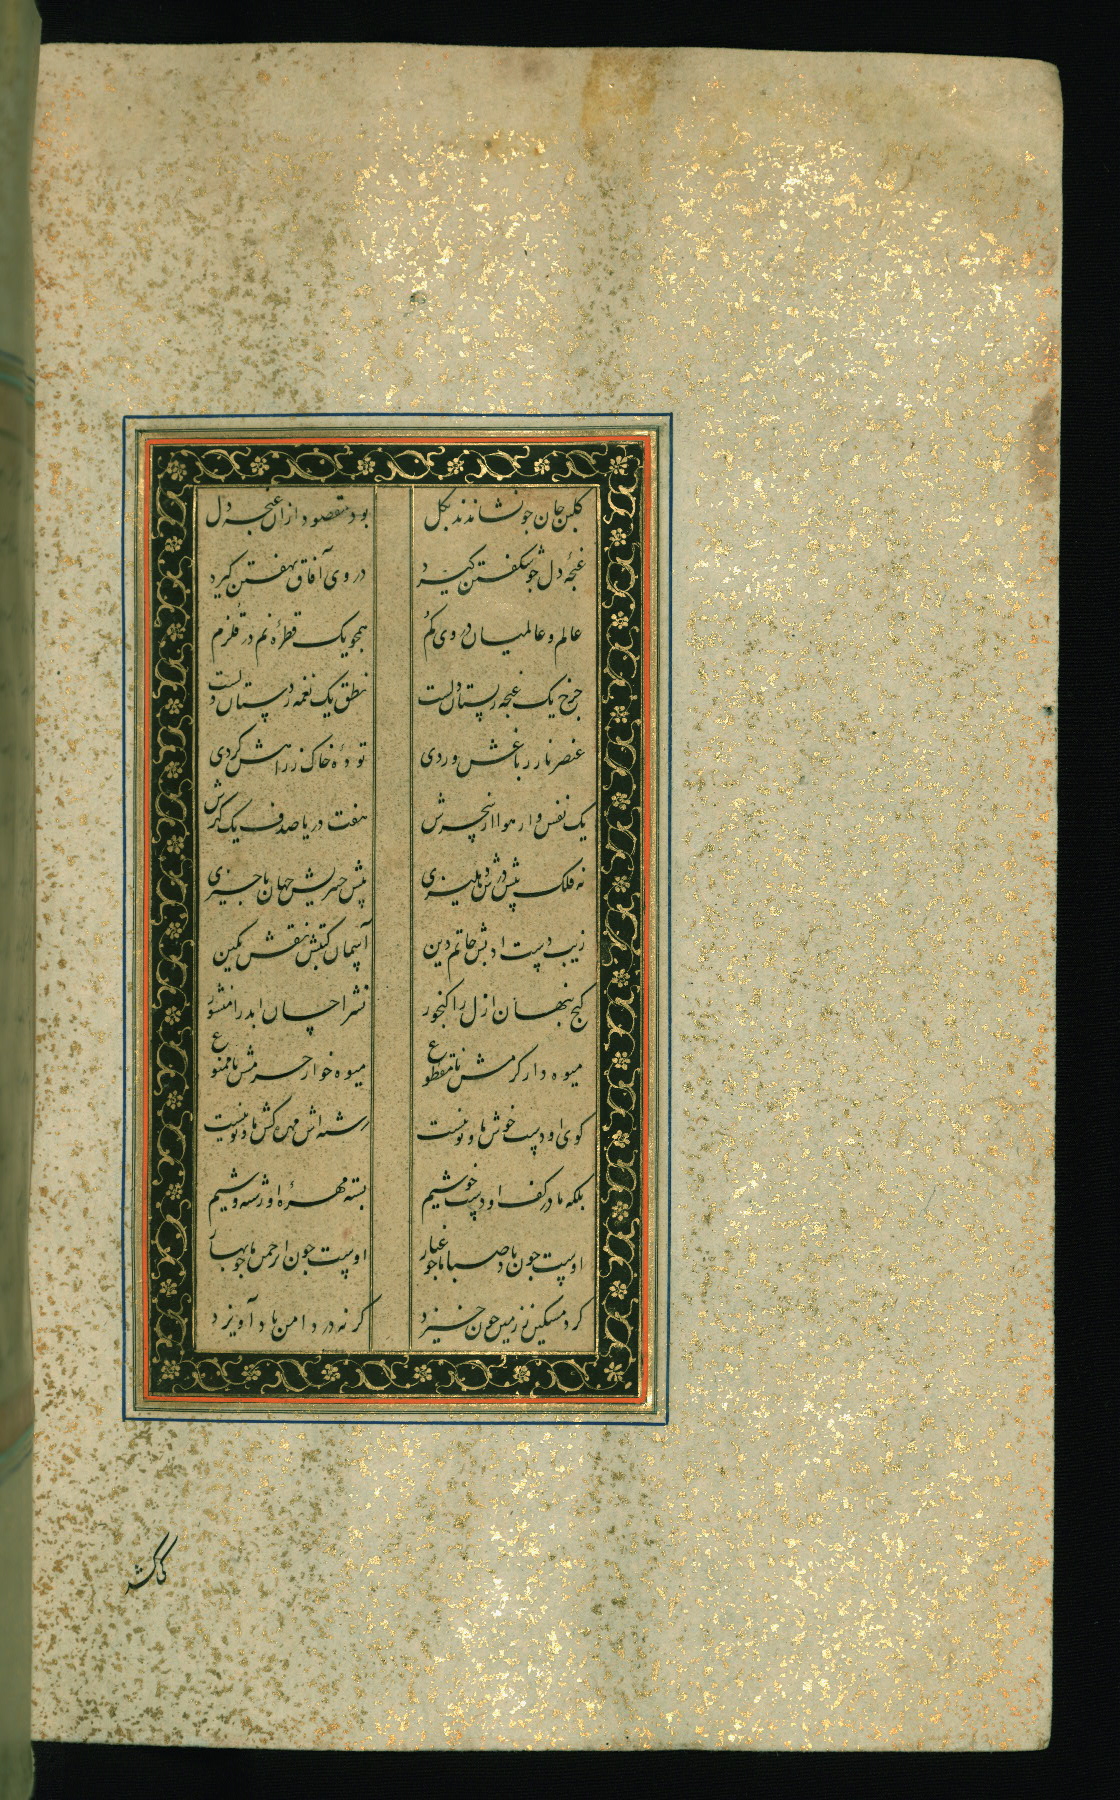 کلبن جان جو نشاندند بکل بود مقصود ازان غنجه دل
غنجهٔ دل جو شکفتن کیرد در وی آفاق نهفتن کیرد
عالم و عالمیان در وی کم همجو یک قطرهٔ نم در قلزم
جرخ یک غنجه ز بستان دلست نطق یک نغمه ز دستان دلست
عنصر نار ز باغش وردی تودهٔ خاک ز راهش کردی
یک نفس وار هوا از سحرش هفت دریا صدف یک کهرش
نه فلک پیش درش دهلیزی پیش خسریش جهان ناجیزی
زیب دست ادبش خاتم دین آسمان کتبش نقش نکین
کنج بنهان ازل را کنجور نشر احسان ابد را منشور
میوه دار کرمش نامقطوع میوه خوار حرمش ناممنوع
کوی او دست خوش ما و تو نیست رشته اش مهره کش ما و تو نیست
بلکه ما در کف او دست خوشیم بسته مهرهٔ او رشته وشیم
اوست جون باد صبا ما جو غبار اوست جون ارحمن ما جو بهار
کرد مسکین ز زمین جون خیزد کر نه در دامن باد آویزد
کاشر